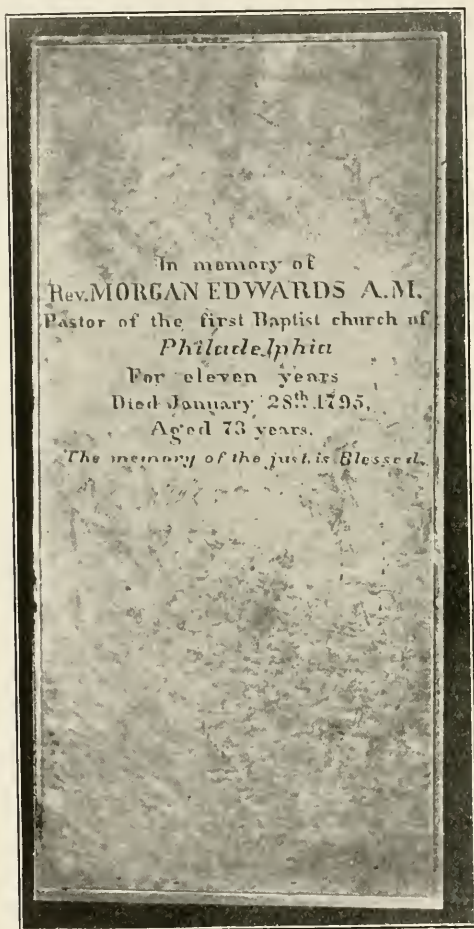 In memory of
Rev. MORGAN EDWARDS A.M.
Pastor of the first Baptist church of
Philadelphia
For eleven years
Died January 28th 1795,
Aged 73 years.
The memory of the just is Blessed.